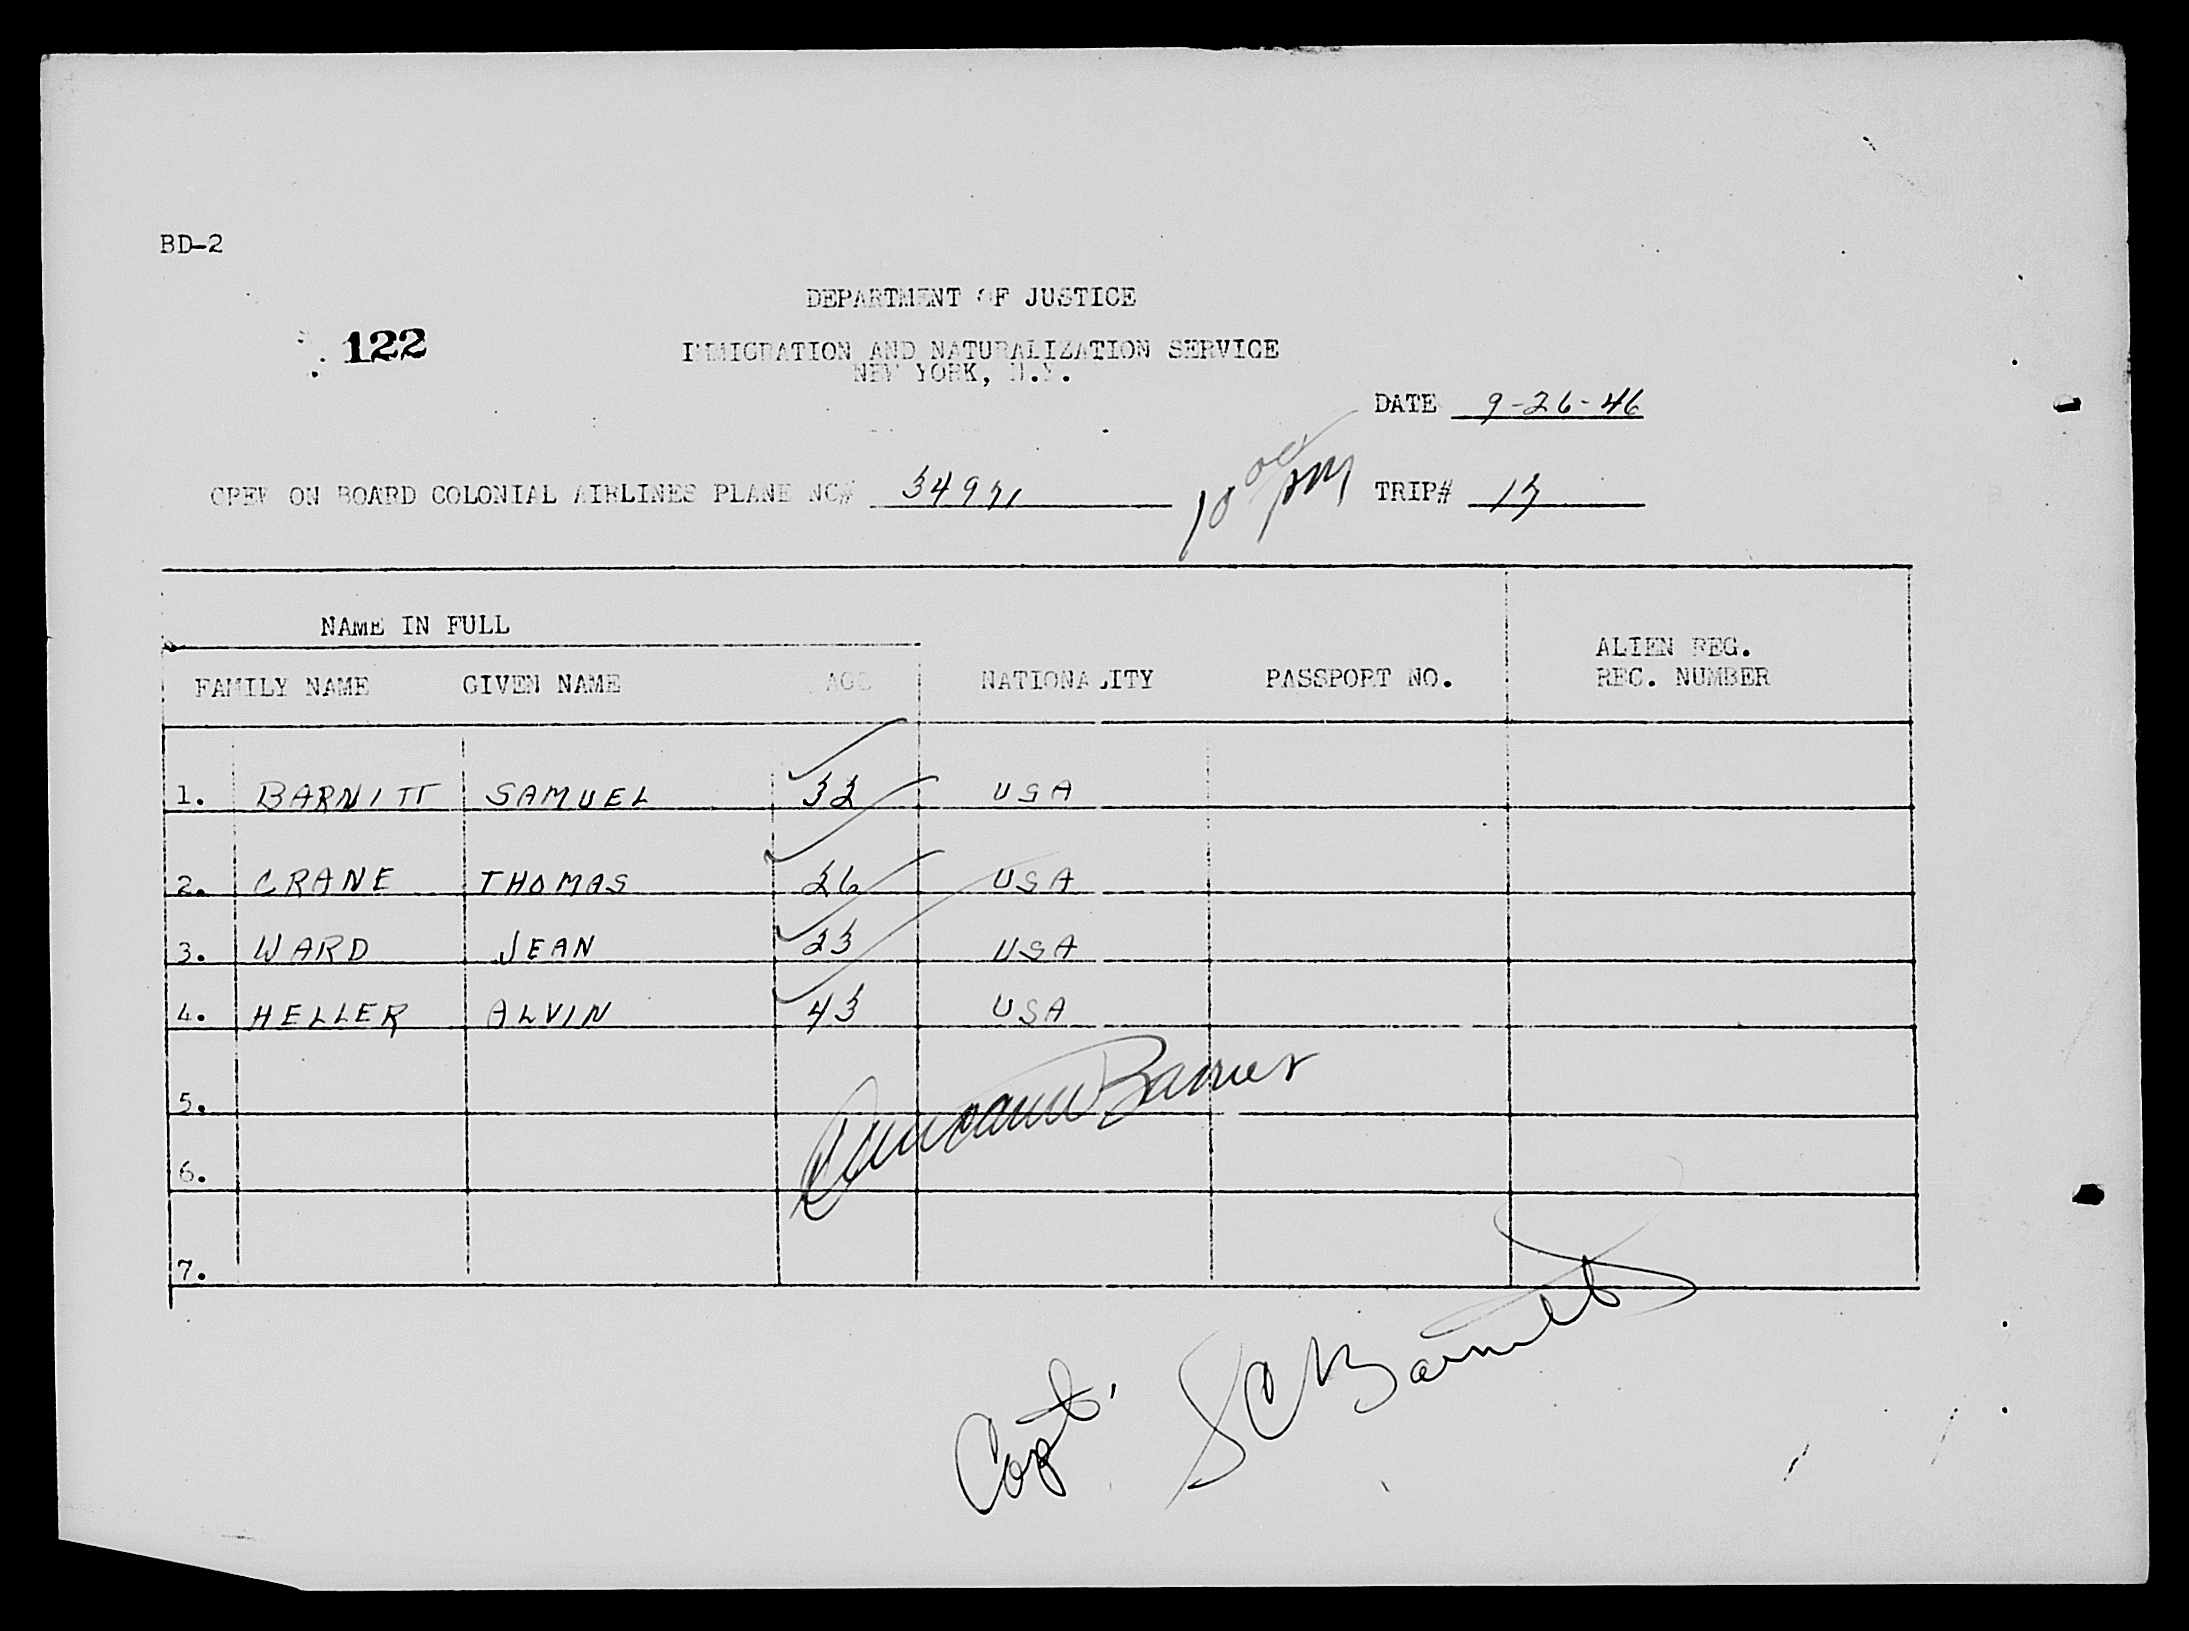 BD-2
DEPARTMENT OF JUSTICE
122
IMMIGRATION AND NATURALIZATION SERVICE
NEW YORK, N.Y.
DATE 9-26-46
CREW ON BOARD COLONIAL AIRLINES PLANE NC# 34971 10 00 PM TRIP# 17
NAME IN FULL
FAMILY NAME GIVEN NAME AGE NATIONALITY PASSPORT NO. ALIEN REG.
REC. NUMBER
1. BARNITT SAMUEL 32 USA
2. CRANE THOMAS 26 USA
3. WARD JEAN 23 USA
4. HELLER ALVIN 43 USA
5.
6.
7.
Capt. SC Barnitt